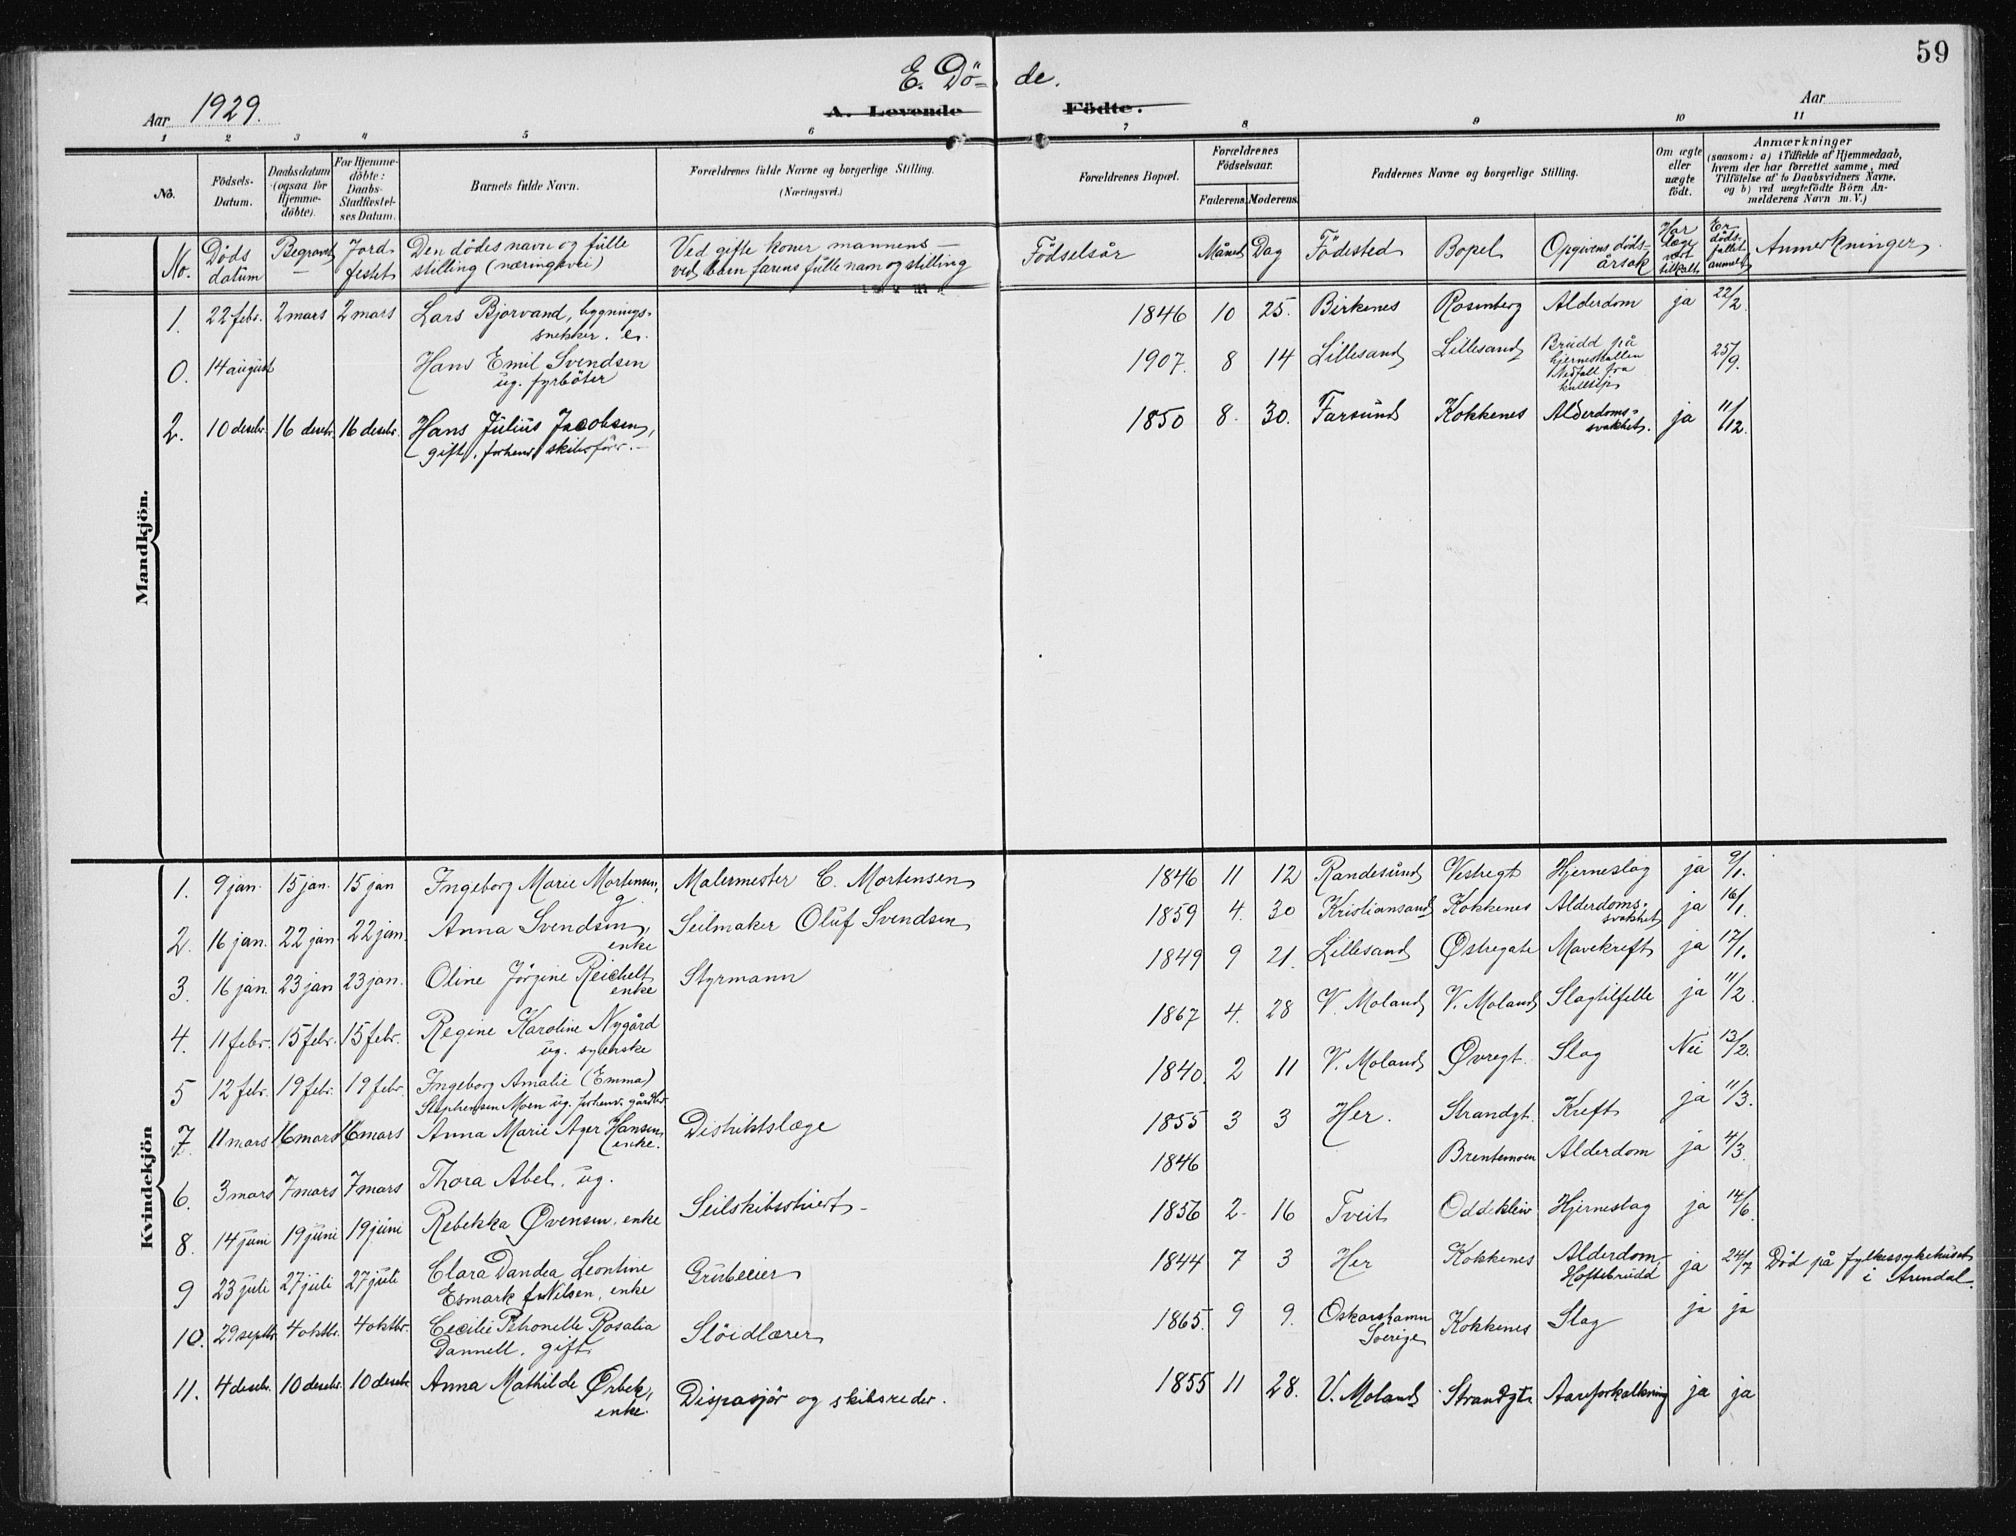 59
E. Dö- de.
Aar 1929.
A. Levende Födte.
Aar
1 2 3 4 5 6 7 8 9 10 11
No. Födsels-Datum. Daabsdatum (ogsaa for Hjemme-döbte). For Hjemme-döbte: Daabs-Stadfæstel-ses Datum. Barnets fulde Navn. Forældrenes fulde Navne og borgerlige Stilling. (Næringsvei.) Forældrenes Bopæl. Forældrenes Födselsaar. Faderens. Moderens. Faddernes Navne og borgerlige Stilling. Om ægte eller uægte födt. Anmærkninger (saasom: a) i Tilfælde af Hjemmedaab, hvem der har forrettet samme, med Tilföielse af to Daabsvidners Navne. og b) ved uægtefödte Börn An-melderens Navn m. V.)
No. Døds datum Begravet Jord festet Den dødes navn og fulle stilling (næringsvei) Ved gifte koner mannens - ved barn farens fulle navn og stilling Födselsår Måned Dag Födested Bopel Opgivens døds-årsak Har læge vært tilkalt Er döds-fallet anmeldt Anmerkninger.
Mandkjön.
1. 22 febr. 2 mars 2 mars Lars Bjorvand, bygnings-snekker. e. 1846 10 25. Birkenes Rosenberg Alderdom ja 22/2
0. 14 august Hans Emil Svendsen ug. fyrböter 1907. 8 14 Lillesand Lillesand Brudd på hjerneskallen Nedfall fra 25/9.
2. 10 desebr. 16 desebr. 16 desebr. Hans Julius Jacobsen, gift, forhenv. skibsförer. 1850 8. 30. Farsund Kokkenes Alderdoms-svakhet. ja 11/12.
Kvindekjön
1. 9 jan. 15 jan. 15 jan Ingeborg Marie Mortensen, g. Malermester C. Mortensen 1846 11 12 Randesund Vestregt Hjerneslag ja 9/1.
2. 16 jan. 22 jan. 22 jan. Anna Svendsen, enke Seilmaker Oluf Svendsen 1859 4. 30 Kristiansand Kokkenes Alderdoms-svakhet ja 16/1.
3. 16 jan. 23 jan 23 jan. Oline Jörgine Reichelt enke Styrmann 1849 9 21. Lillesand Østregate Mavekreft ja 17/1.
4. 11 febr. 15 febr. 15 febr. Regine Karoline Nygård ug. syerske 1867 4. 28 V. Moland V. Moland Slagtilfelle ja 11/2.
5 12 febr. 19 febr. 19 febr. Ingeborg Amalie (Emma) Stephensen Moen ug. forhenv. gårdbr. 1840. 2 11 V. Moland Øvregt. Slag Nei 13/2.
7. 11 mars 16 mars 16 mars Anna Marie Ager Hansen, enke. Distriktslæge 1855 3 3 Her. Strandgt. Kreft ja 11/3.
6. 3 mars 7 mars 7 mars Thora Abel, ug. 1846 Brentemoen Alderdom ja 4/3.
8. 14 juni 19 juni 19 juni Rebekka Øvensen, enke 1856 2. 16 Tveit Oddekleiv Hjerneslag ja 14/6.
9 23 juli 27 juli 27 juli Clara Dandea Leontine Esmark f. Nilsen, enke Grubeeier 1844 7 3 Her Kokkenes Alderdom, Hoftebrudd ja 24/7 Död på fylkessykehuset i Arendal.
10. 29 septbr. 4 oktbr. 4 oktbr. Cecilie Petronelle Rosalia Dannell. gift Slöidlærer 1865. 9 9. Oskarshamn Sverige Kokkenes Slag ja ja
11. 4 desebr. 10 desebr. 10 desebr Anna Mathilde Ørbek, enke. Dispasjör og skibsreder. 1855 11 28. V. Moland Strandgt. Aareforkalkning ja ja